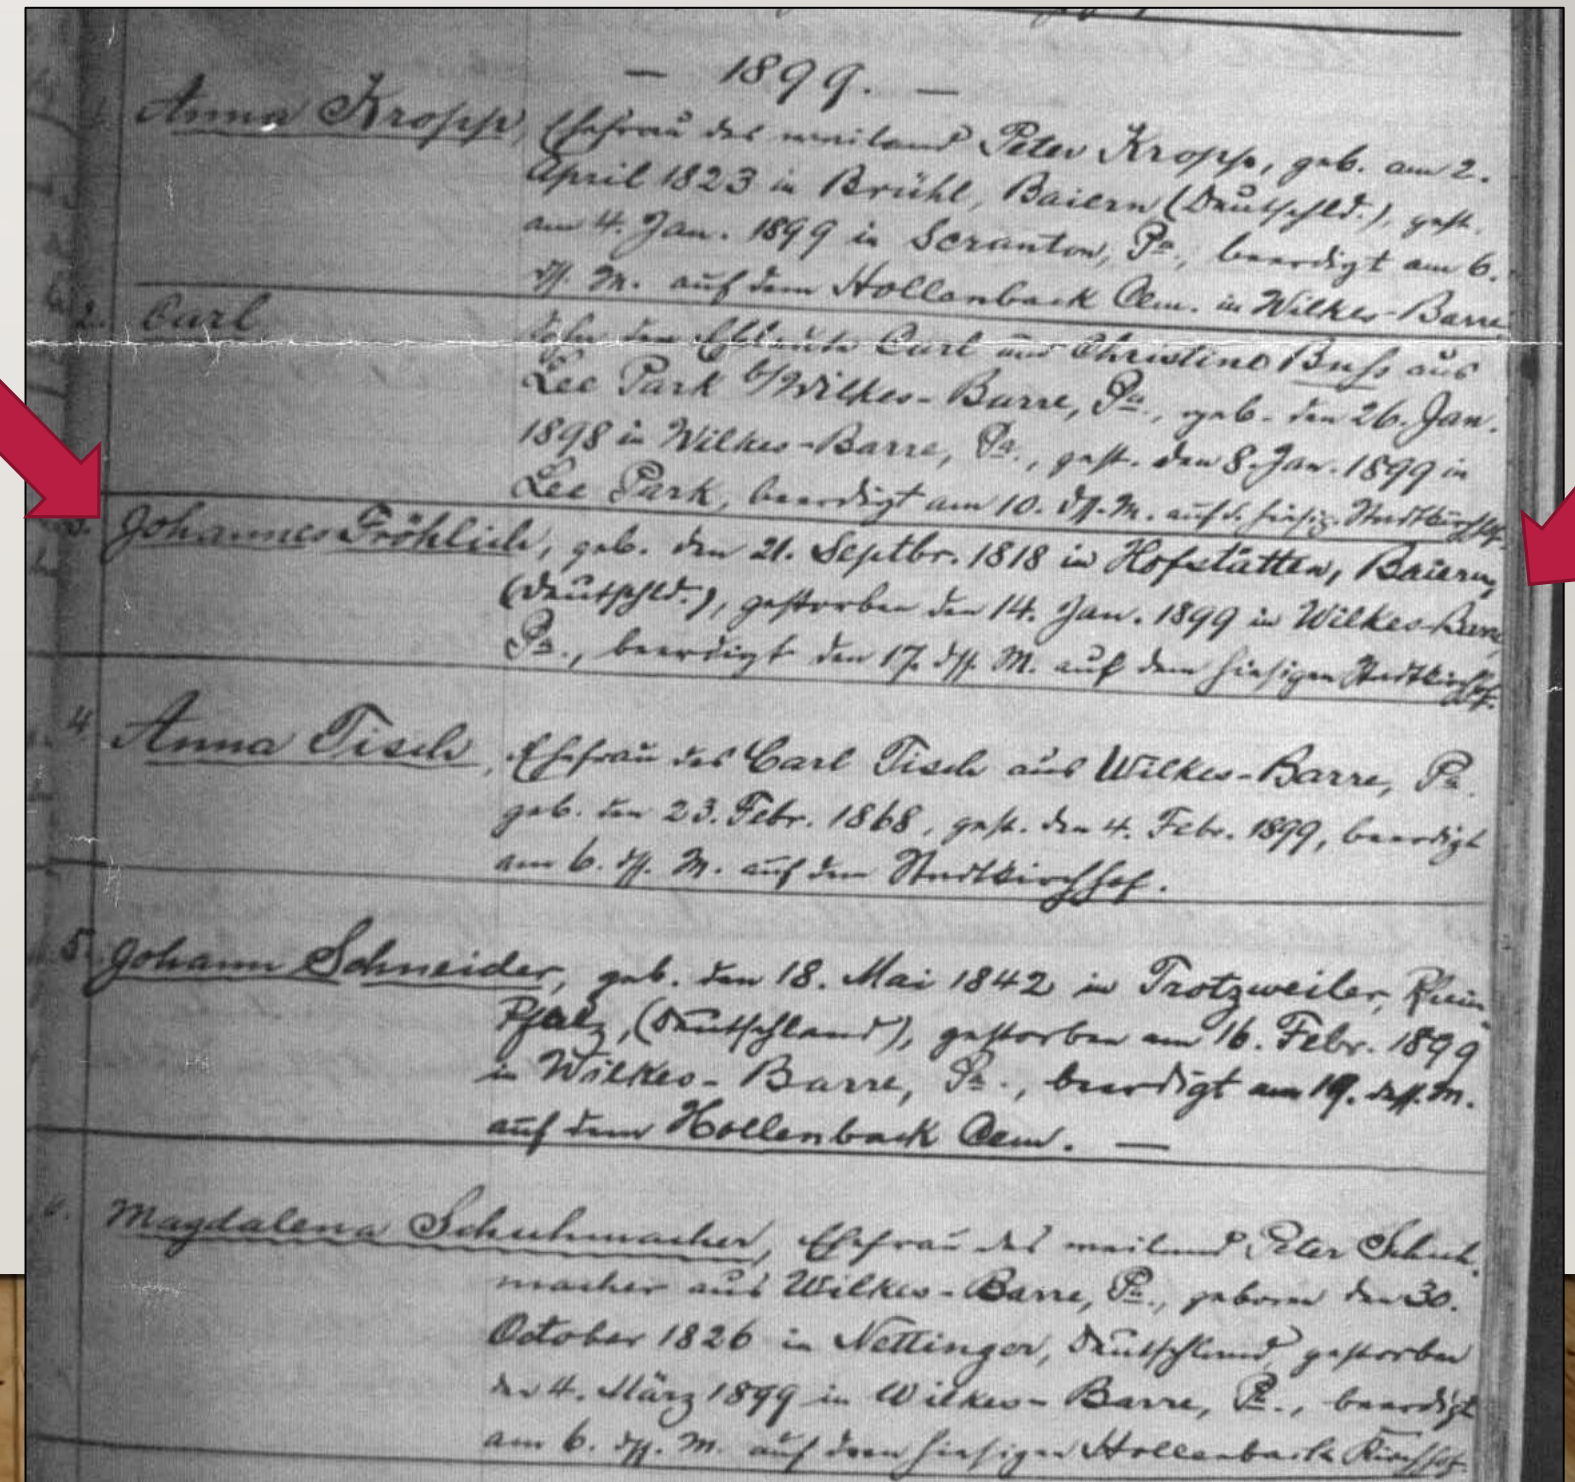 — 1899. —
1. Anna Kropp, Ehefrau des weiland Peter Kropp, geb. am 2.
April 1823 in Brühl, Baiern (Deutschld.), gest.
am 4. Jan. 1899 in Scranton, Pa., beerdigt am 6.
dss. M. auf dem Hollenback Cem. in Wilkes-Barre
2. Carl, Sohn der Eheleute Carl und Christine Buss aus
Lee Park b/Wilkes-Barre, Pa., geb. den 26. Jan.
1898 in Wilkes-Barre, Pa., gest. den 8. Jan. 1899 in
Lee Park, beerdigt am 10. dss. M. auf d. hiesig. Stadtkirchhof.
3. Johannes Fröhlich, geb. den 21. Septbr. 1818 in Hofstätten, Baiern,
(Deutschld.), gestorben den 14. Jan. 1899 in Wilkes-Barre,
Pa., beerdigt den 17. dss. M. auf dem hiesigen Stadtkirchhof.
4. Anna Tisch, Ehefrau des Carl Tisch aus Wilkes-Barre, Pa.
geb. den 23. Febr. 1868, gest. den 4. Febr. 1899, beerdigt
am 6. dss. M. auf dem Stadtkirchhof.
5. Johann Schneider, geb. den 18. Mai 1842 in Trotzweiler, Rhein-
Pfalz, (Deutschland), gestorben am 16. Febr. 1899
in Wilkes-Barre, Pa., beerdigt am 19. dss. M.
auf dem Hollenback Cem. —
6. Magdalena Schuhmacher, Ehefrau des weiland Peter Schuh-
macher aus Wilkes-Barre, Pa., geboren den 30.
October 1826 in Nettinger, Deutschland, gestorben
den 4. März 1899 in Wilkes-Barre, Pa., beerdigt
am 6. dss. M. auf dem hiesigen Hollenback Kirchhof